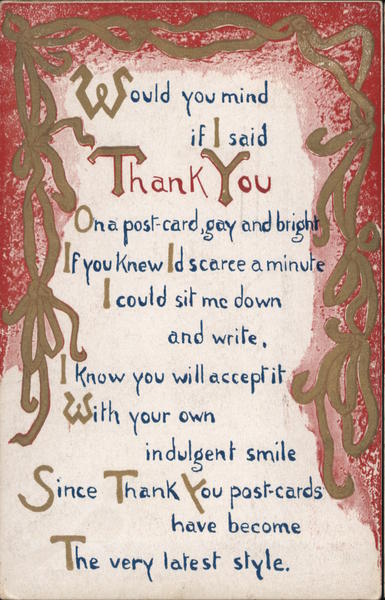 Would you mind
if I said
Thank You
On a post-card, gay and bright
If you knew Id scarce a minute
I could sit me down
and write,
I know you will accept it
With your own
indulgent smile
Since Thank You post-cards
have become
The very latest style.